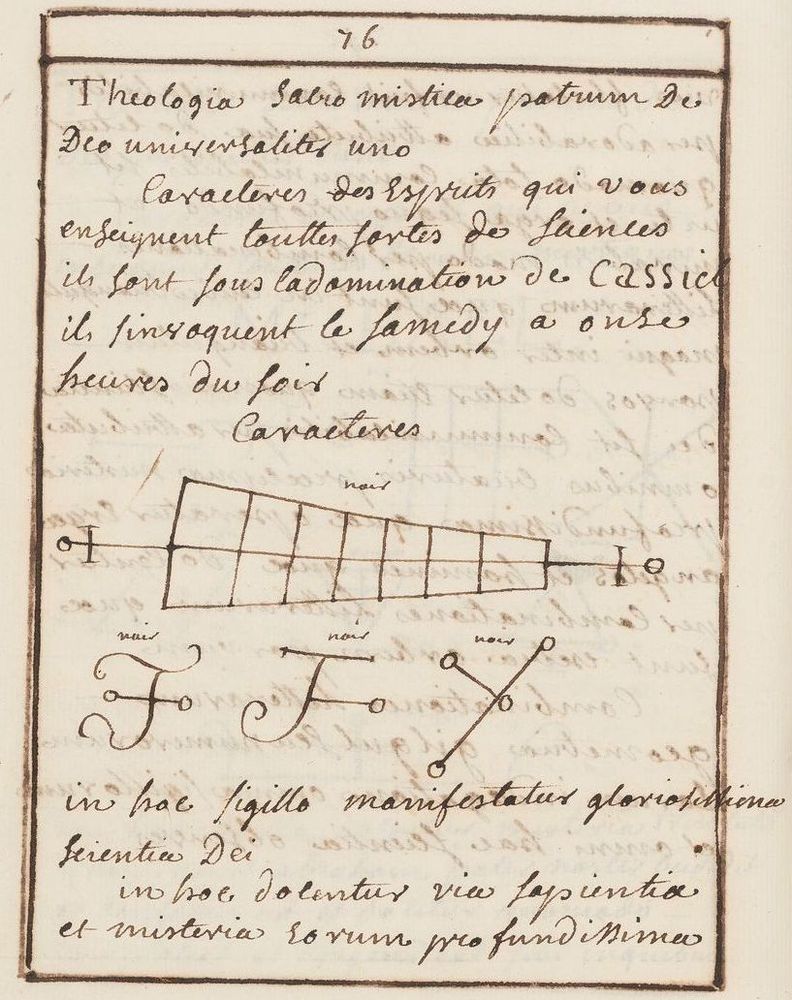 76
Theologia Sacro mistica patrum De
Deo universaliter uno
Caracteres des Esprits qui vous
enseignent touttes sortes de sciences
ils sont sous ladomination de CASSIEL
ils sinvoquent le samedy a onse
heures du soir
Caracteres
noir
noir noir noir
in hoc sigillo manifestatur gloriosissima
scientia Dei
in hoc docentur via sapientia
et misteria eorum profundissima